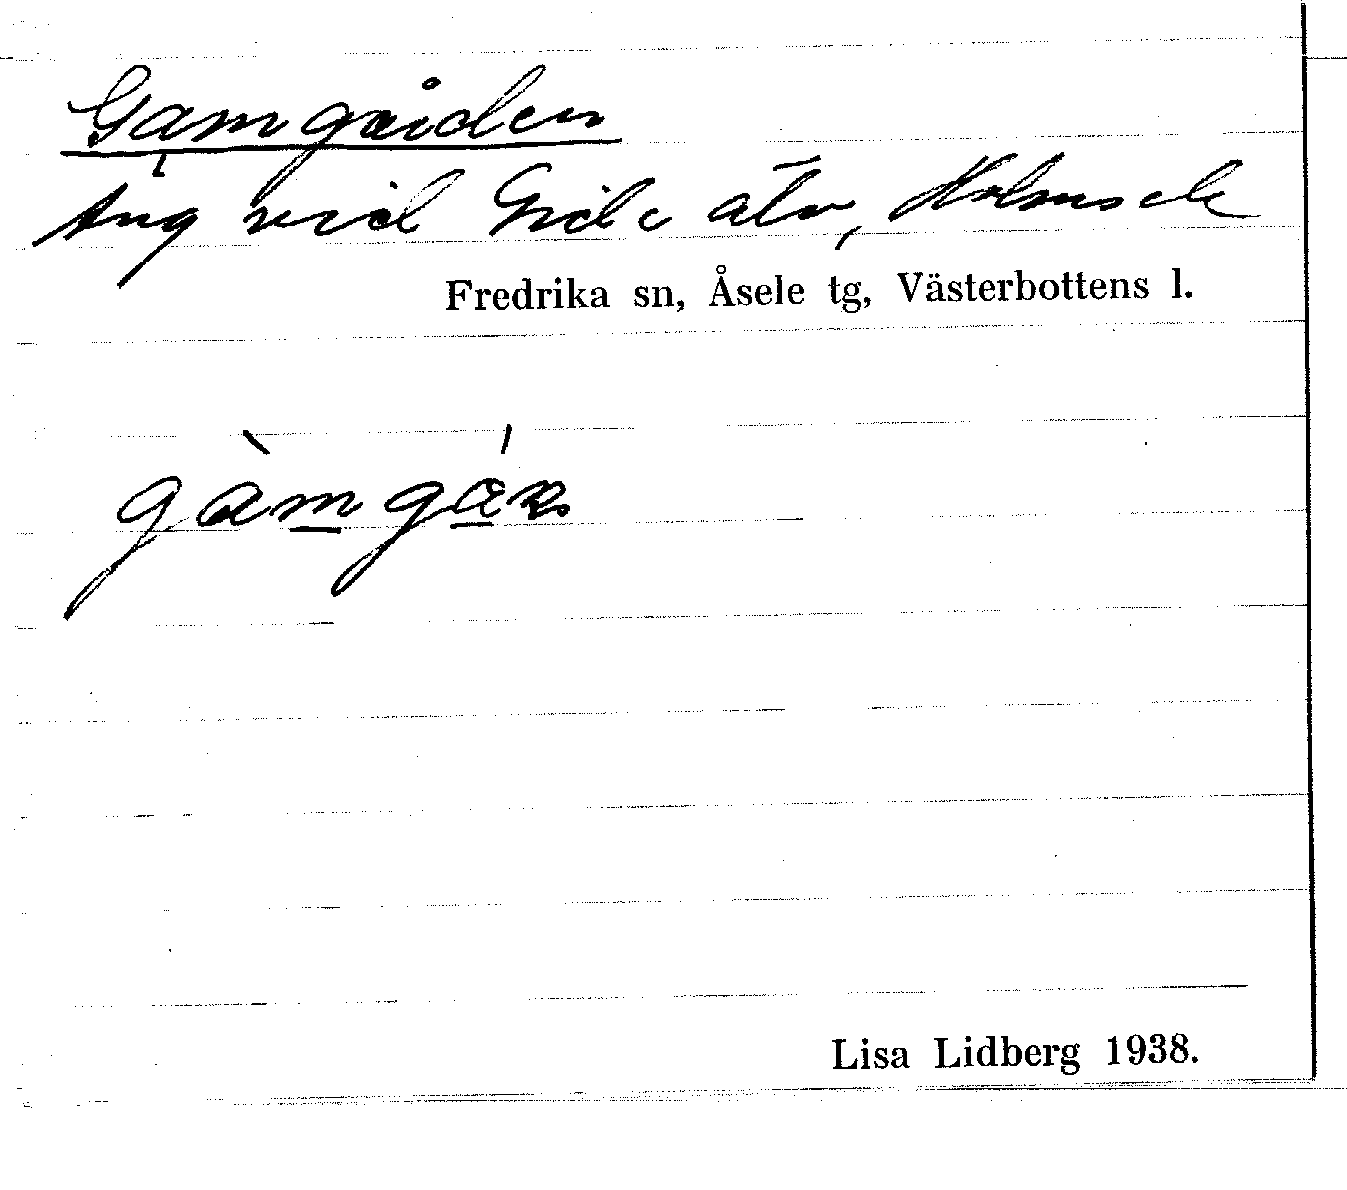 Gamgården
Äng vid Gide älv, Holmsele
Fredrika sn, Åsele tg, Västerbottens l.
Lisa Lidberg 1938.